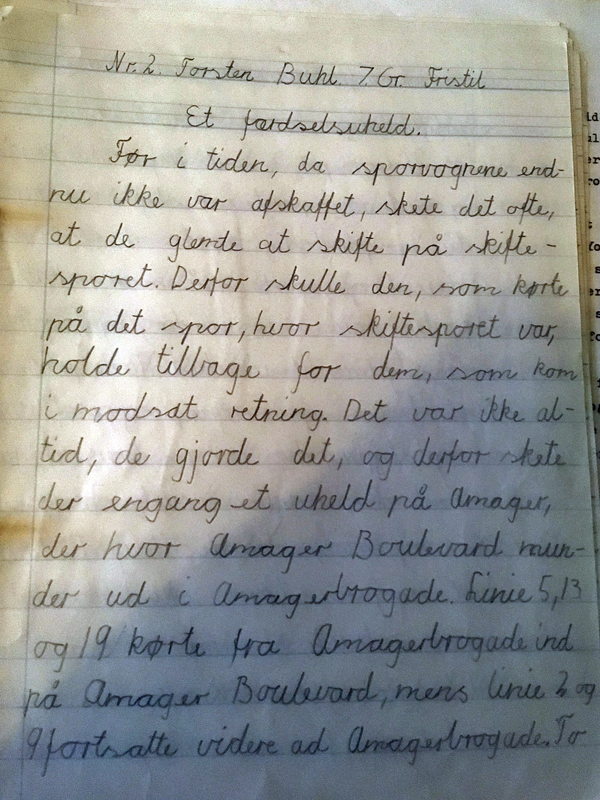 Nr. 2. Torsten Buhl. 7. Gr. Fristil
Et færdselsuheld.
Før i tiden, da sporvognene end-
nu ikke var afskaffet, skete det ofte,
at de glemte at skifte på skifte-
sporet. Derfor skulle den, som kørte
på det spor, hvor skiftesporet var,
holde tilbage for dem, som kom
i modsat retning. Det var ikke al-
tid, de gjorde det, og derfor skete
der engang et uheld på Amager,
der hvor Amager Boulevard mun-
der ud i Amagerbrogade. Linie 5, 13
og 19 kørte fra Amagerbrogade ind
på Amager Boulevard, mens linie 2 og
9 fortsatte videre ad Amagerbrogade. To